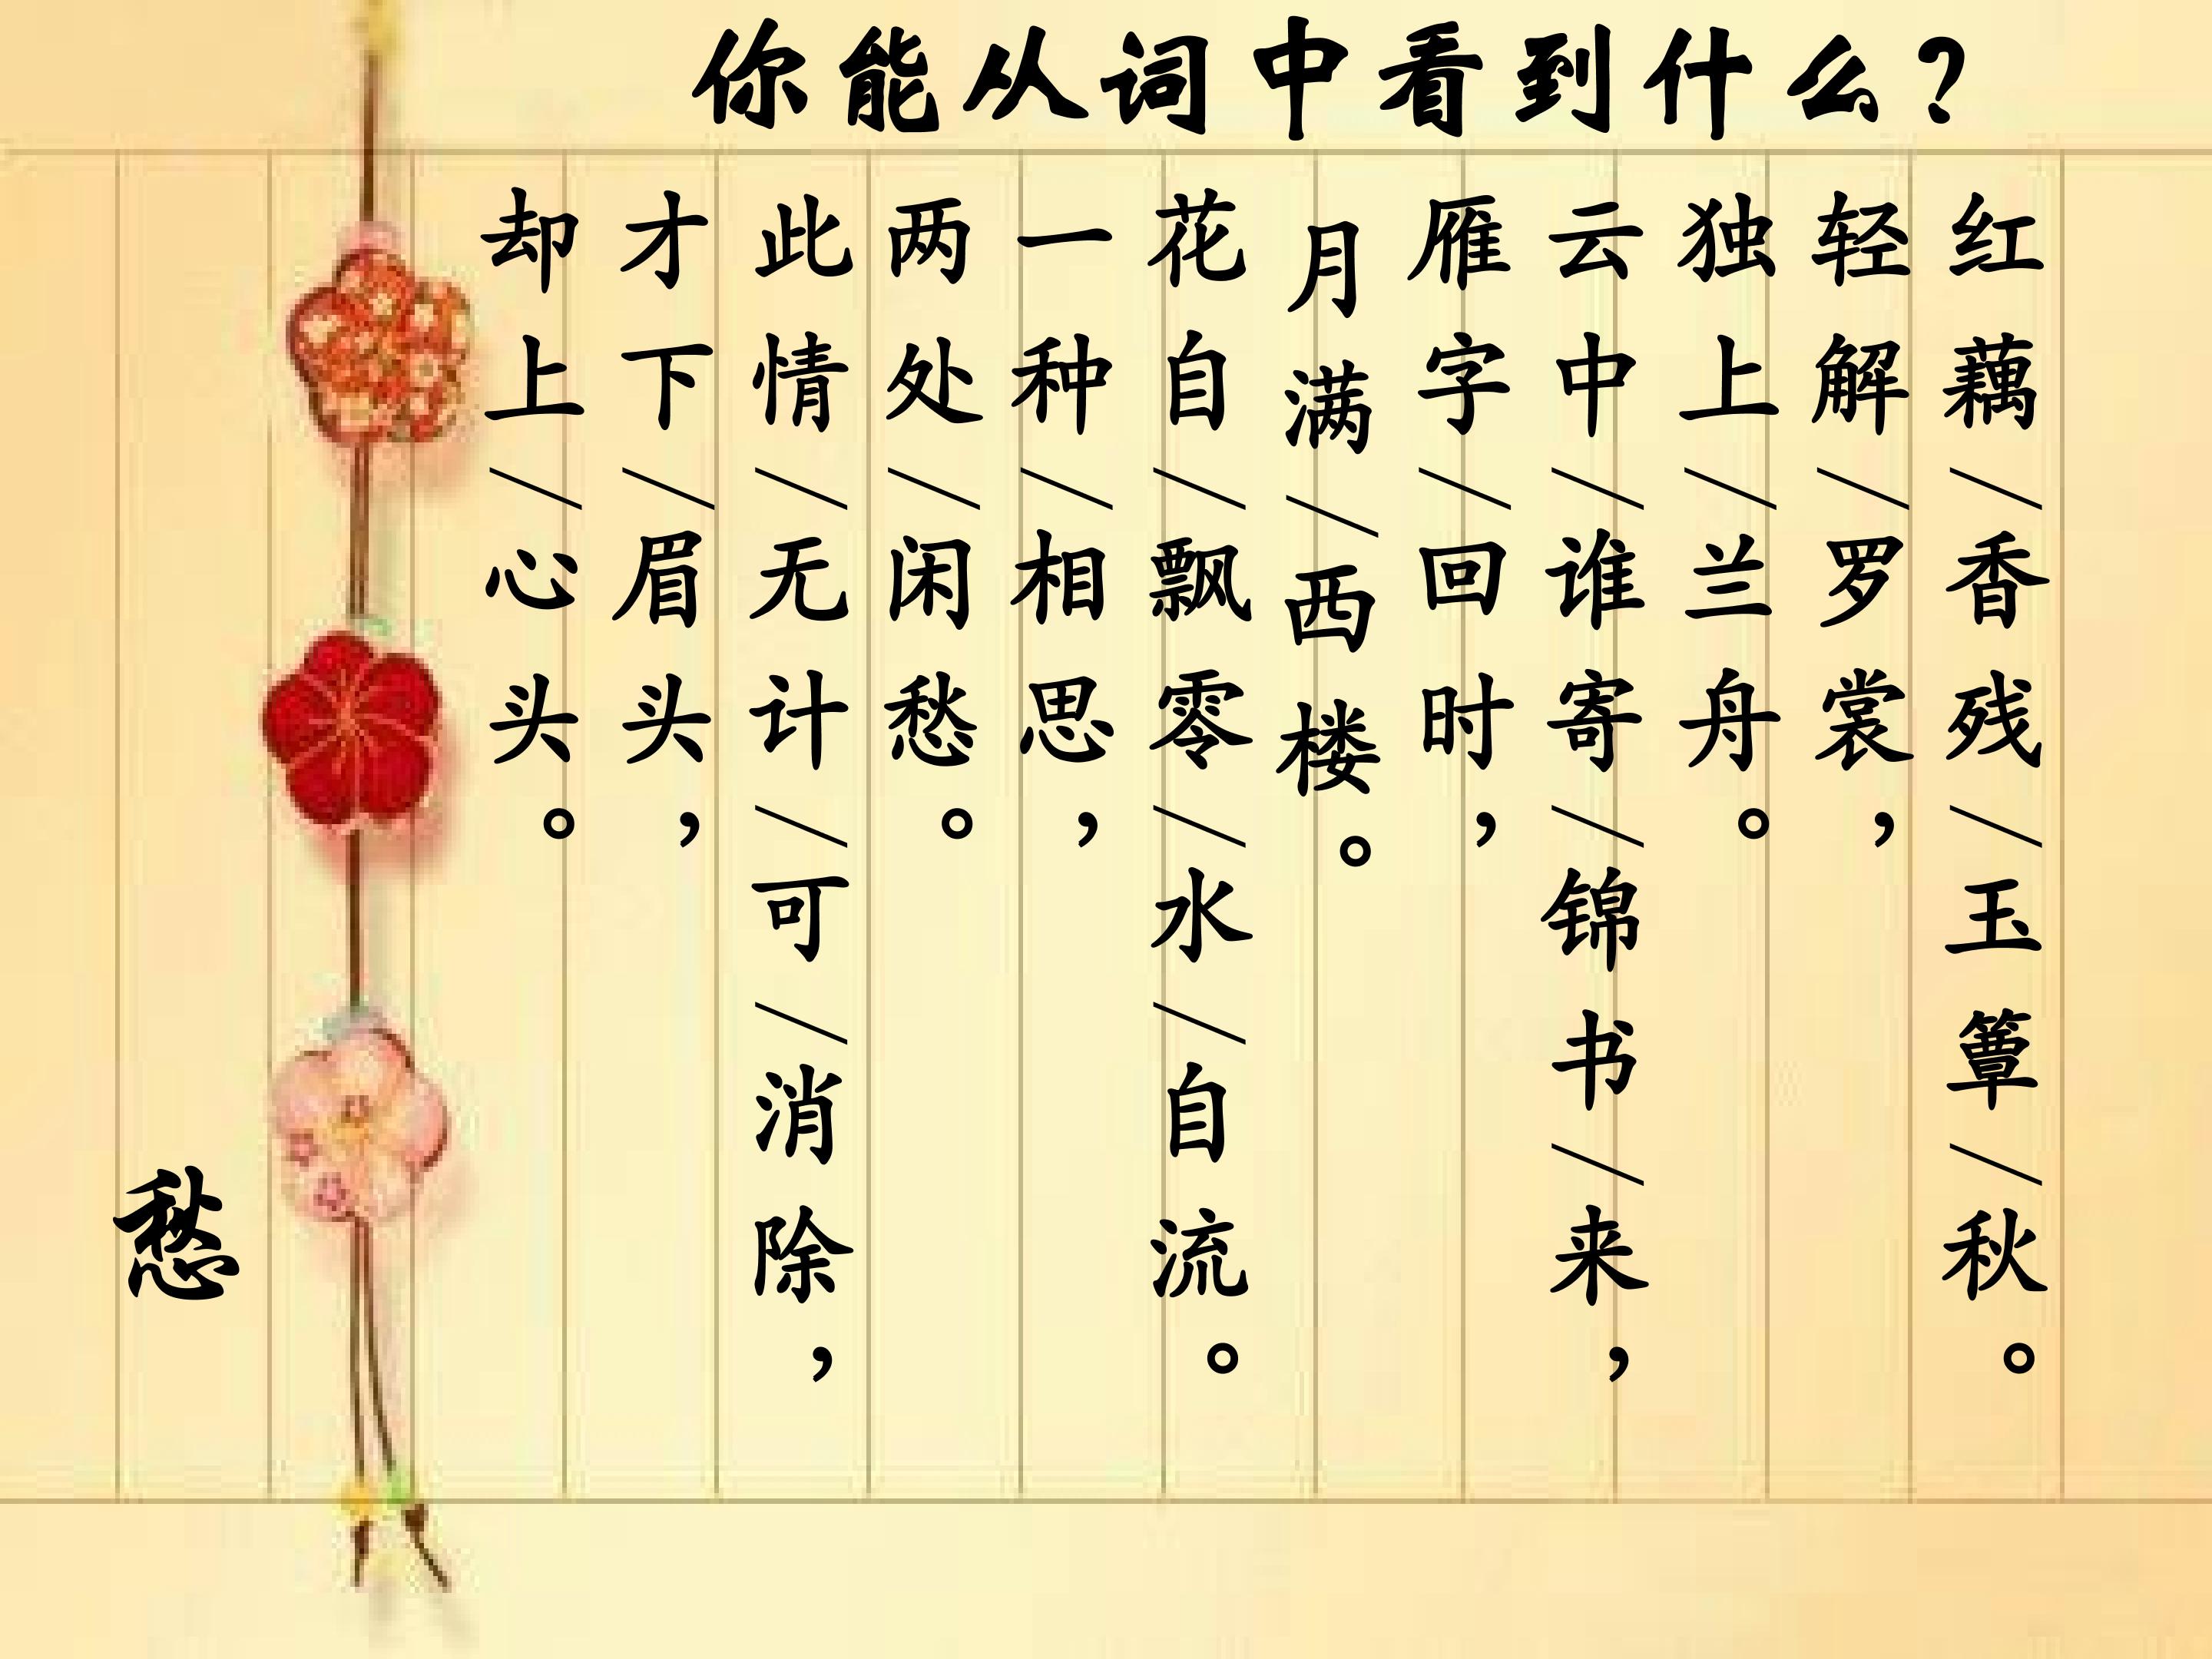 你能从词中看到什么?
红藕/香残/玉簟/秋。
轻解/罗裳,
独上/兰舟。
云中/谁寄/锦书/来,
雁字/回时,
月满/西楼。
花自/飘零/水/自流。
一种/相思,
两处/闲愁。
此情/无计/可/消除,
才下/眉头,
却上/心头。
愁